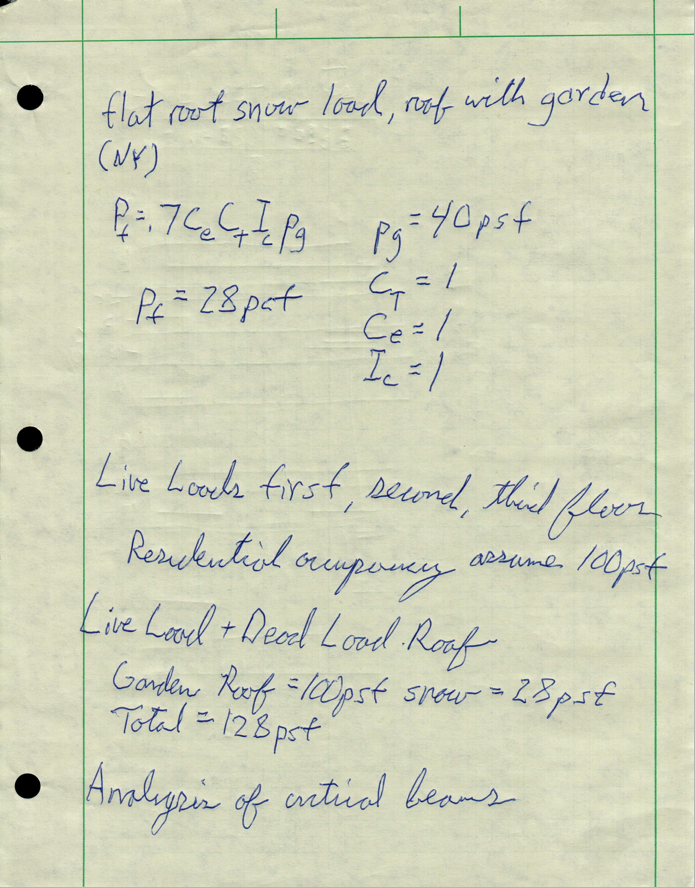 flat root snow load, roof with garden
(NY)
Pf = .7 Ce Ct Ic pg
pg = 40psf
CT = 1
Pf = 28psf
Ce = 1
Ic = 1
Live Loads first, second, third floor
Residential occupancy assume 100psf
Live Load + Dead Load Roof
Garden Roof = 100psf snow = 28psf
Total = 128psf
Analysis of critical beams